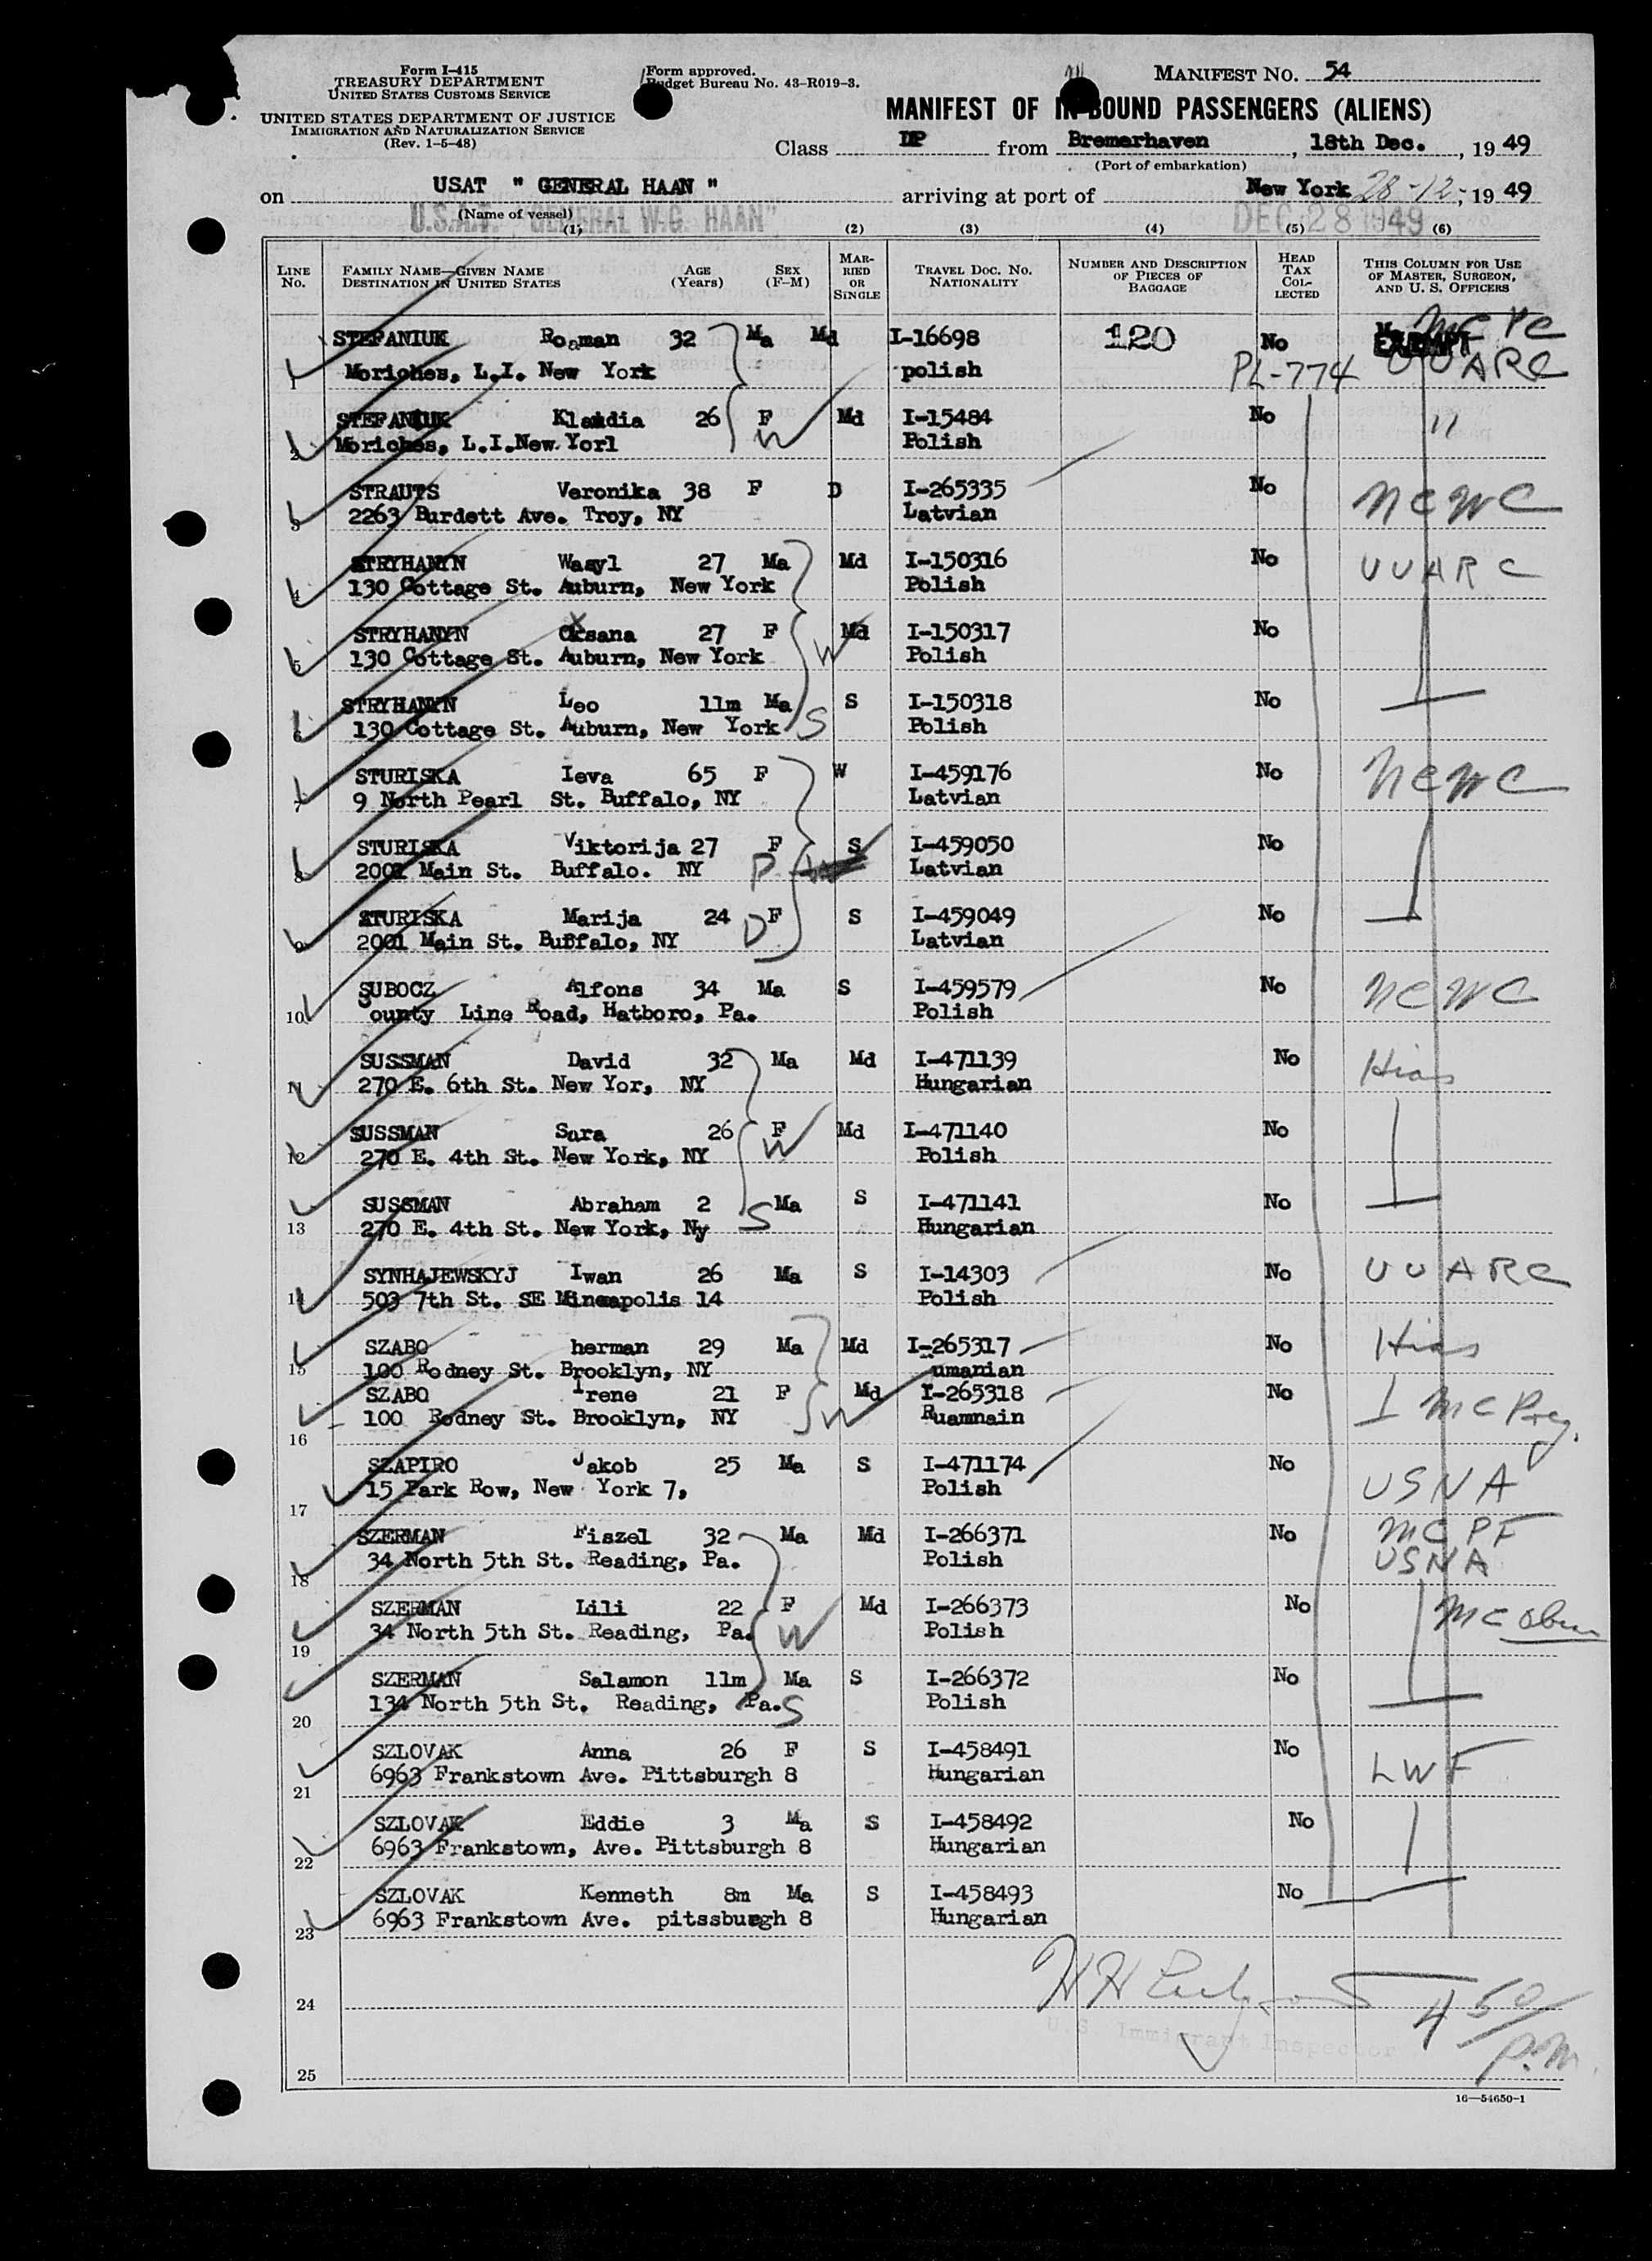 Form I-415
TREASURY DEPARTMENT
UNITED STATES CUSTOMS SERVICE
UNITED STATES DEPARTMENT OF JUSTICE
IMMIGRATION AND NATURALIZATION SERVICE
(Rev. 1-5-48)
Form approved.
Budget Bureau No. 43-R019-3.
MANIFEST NO. 54
MANIFEST OF INBOUND PASSENGERS (ALIENS)
Class DP from Bremerhaven, 18th Dec., 1949
(Port of embarkation)
on USAT " GENERAL HAAN " arriving at port of New York 28-12-, 1949
(Name of vessel)
U.S.A.T. "GENERAL W.G. HAAN"
DEC 28 1949
(1) (2) (3) (4) (5) (6)
LINE NO. FAMILY NAME—GIVEN NAME DESTINATION IN UNITED STATES AGE (Years) SEX (F-M) MARRIED OR SINGLE TRAVEL DOC. NO. NATIONALITY NUMBER AND DESCRIPTION OF PIECES OF BAGGAGE HEAD TAX COLLECTED THIS COLUMN FOR USE OF MASTER, SURGEON, AND U. S. OFFICERS
STEFANIUK Roaman 32 Ma Md I-16698 120 No EXEMPT MC PC
1 Moriches, L.I. New York polish PL-774 UUARC
STEFANIUK Klaudia 26 F Md I-15484 No "
2 Moriches, L.I.New Yorl W Polish
STRAUTS Veronika 38 F D I-265335 No NCWC
3 2263 Burdett Ave. Troy, NY Latvian
STRYHANYN Wasyl 27 Ma Md I-150316 No UUARC
4 130 Cottage St. Auburn, New York Polish
STRYHANYN Oksana 27 F Md I-150317 No
5 130 Cottage St. Auburn, New York W Polish
STRYHANYN Leo 11m Ma S I-150318 No
6 130 Cottage St. Auburn, New York S Polish
STURISKA Ieva 65 F W I-459176 No NCWC
7 9 North Pearl St. Buffalo, NY Latvian
STURISKA Viktorija 27 F S I-459050 No
8 2001 Main St. Buffalo. NY D Latvian
STURISKA Marija 24 F S I-459049 No
9 2001 Main St. Buffalo, NY D Latvian
SUBOCZ Alfons 34 Ma S I-459579 No NCWC
10 County Line Road, Hatboro, Pa. Polish
SUSSMAN David 32 Ma Md I-471139 No Hias
11 270 E. 6th St. New Yor, NY Hungarian
SUSSMAN Sara 26 F Md I-471140 No
12 270 E. 4th St. New York, NY W Polish
SUSSMAN Abraham 2 Ma S I-471141 No
13 270 E. 4th St. New York, Ny S Hungarian
SYNHAJEWSKYJ Iwan 26 Ma S I-14303 No UUARC
14 503 7th St. SE Mineapolis 14 Polish
SZABO herman 29 Ma Md I-265317 No Hias
15 100 Rodney St. Brooklyn, NY umanian
SZABO Irene 21 F Md I-265318 No MC Preg.
100 Rodney St. Brooklyn, NY W Ruamnain
16
SZAPIRO Jakob 25 Ma S I-471174 No
15 Park Row, New York 7, Polish USNA
17
SZERMAN Fiszel 32 Ma Md I-266371 No MC PF
34 North 5th St. Reading, Pa. Polish USNA
18
SZERMAN Lili 22 F Md I-266373 No MC
34 North 5th St. Reading, Pa. W Polish
19
SZERMAN Salamon 11m Ma S I-266372 No
134 North 5th St. Reading, Pa. S Polish
20
SZLOVAK Anna 26 F S I-458491 No LWF
6963 Frankstown Ave. Pittsburgh 8 Hungarian
21
SZLOVAK Eddie 3 Ma S I-458492 No
6963 Frankstown, Ave. Pittsburgh 8 Hungarian
22
SZLOVAK Kenneth 8m Ma S I-458493 No
6963 Frankstown Ave. pitssbuegh 8 Hungarian
23
24
U.S. Immigrant Inspector
4 50/P.M.
25
16—54650-1